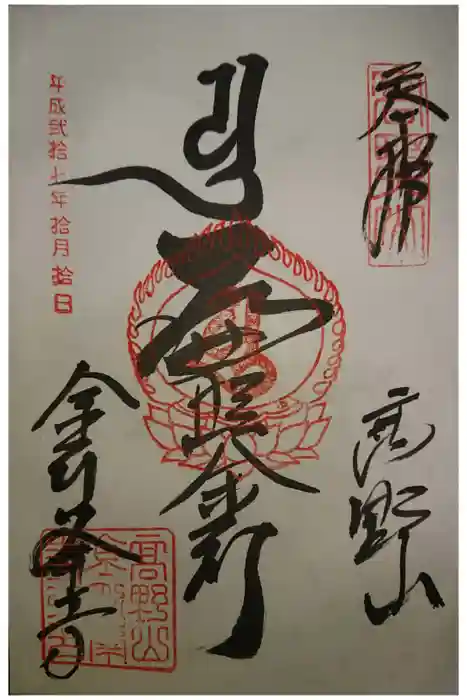 奉拝
高野山
遍照金剛
金剛峯寺
高野山
平成弐拾七年拾月拾日